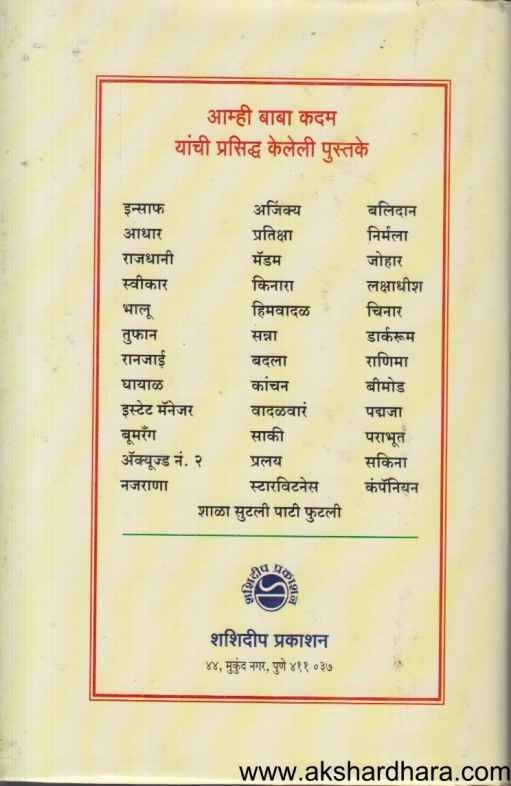 आम्ही बाबा कदम
यांची प्रसिद्ध केलेली पुस्तके
इन्साफ अजिंक्य बलिदान
आधार प्रतिक्षा निर्मला
राजधानी मॅडम जोहार
स्वीकार किनारा लक्षाधीश
भालू हिमवादळ चिनार
तुफान सन्ना डार्करूम
रानजाई बदला राणिमा
घायाळ कांचन बीमोड
इस्टेट मॅनेजर वादळवारं पद्मजा
बूमरँग साकी पराभूत
ॲक्यूज्ड नं. २ प्रलय सकिना
नजराणा स्टारविटनेस कंपॅनियन
शाळा सुटली पाटी फुटली
शशिदीप प्रकाशन
शशिदीप प्रकाशन
४४, मुकुंद नगर, पुणे ४११ ०३७
www.akshardhara.com